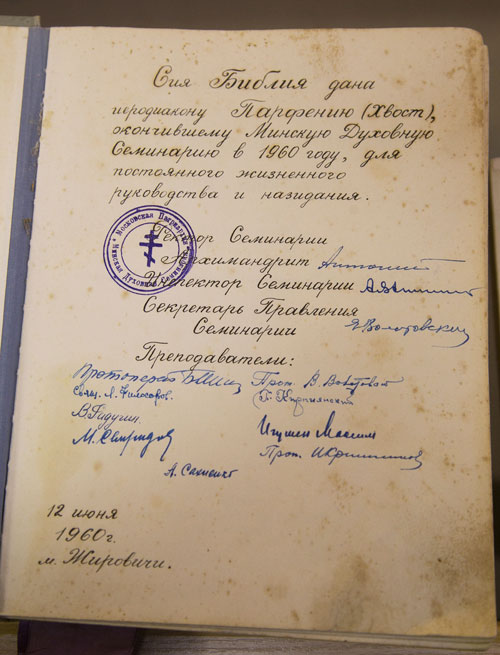 Сия Библия дана
иеродиакону Парфению (Хвост),
окончившему Минскую Духовную
Семинарию в 1960 году, для
постоянного жизненного
руководства и назидания.
Ректор Семинарии
Архимандрит Антоний
Инспектор Семинарии
Секретарь Правления
Семинарии
Преподаватели:
Протоиерей Прот. В.
свящ. А.
В. Гидучин
М. Свиридов Игумен
Прот.
А.
Московская Патриархия
Минская Духовная Семинария
12 июня
1960 г.
м. Жировичи.